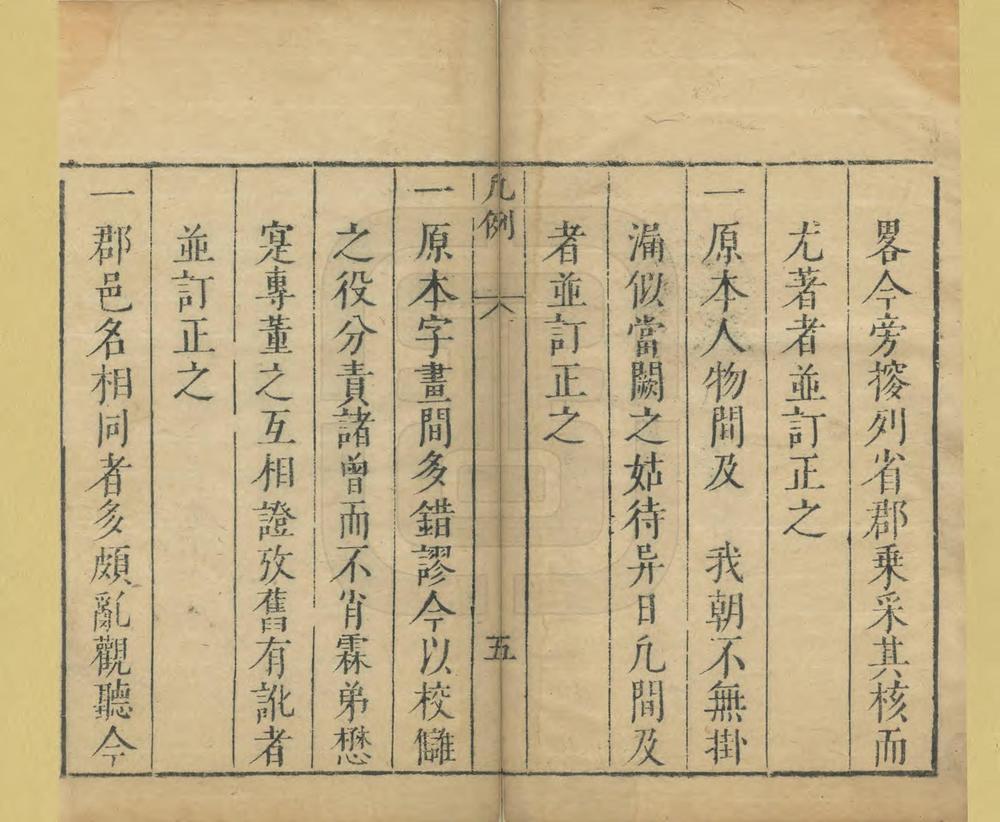 畧今旁搜列省郡乗采其核而
尤著者並訂正之
一原本人物間及　我朝不無掛
漏似當闕之姑待异日凡間及
者並訂正之
凡例　六　五
一原本字畫間多錯謬今以校讎
之役分責諸曾而不肖霖弟懋
寔專董之互相證攷舊有訛者
並訂正之
一郡邑名相同者多頗亂觀聽今